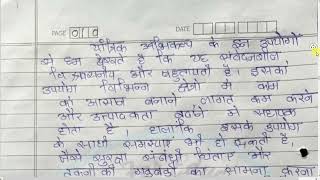 PAGE DATE
यांत्रिक अभिकल्प के इन उपयोगों
से हम देखते हैं कि यह संवेदनशील
विश्वसनीय और बहुतापी है। इसका
उपयोग विभिन्न क्षेत्रों में काम
को आसान बनाने लागत कम करने
और उत्पादकता बढ़ाने में सहायक
होता है, हालांकि इसके उपयोग
के साथ समस्याएं भी हो सकती है,
जैसे सुरक्षा संबंधी चिंताएं और
तकनीकी गड़बड़ी का सामना करना